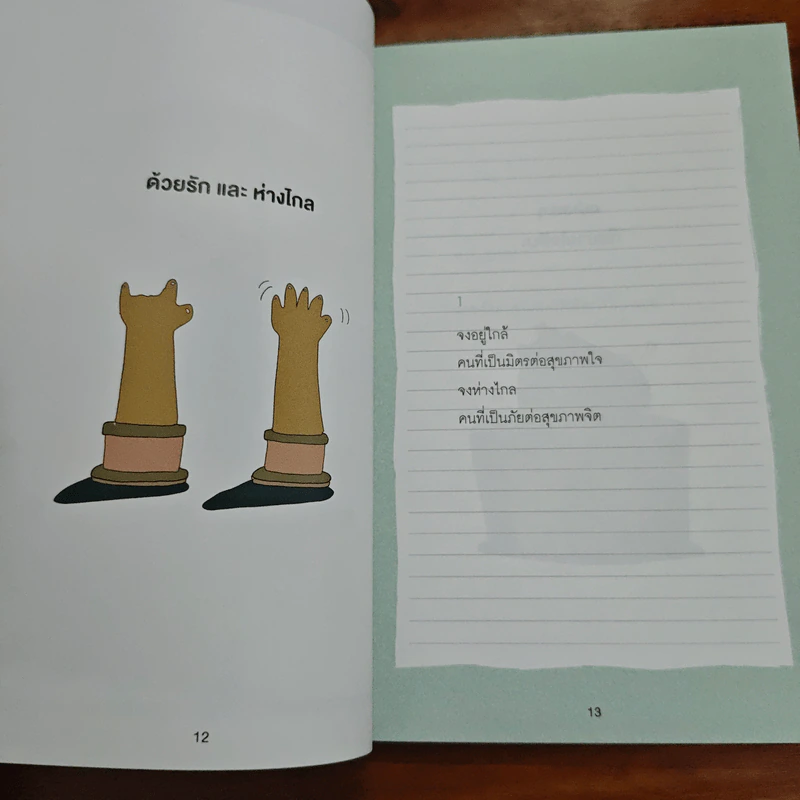 ด้วยรัก และ ห่างไกล
12
1
จงอยู่ใกล้
คนที่เป็นมิตรต่อสุขภาพใจ
จงห่างไกล
คนที่เป็นภัยต่อสุขภาพจิต
13